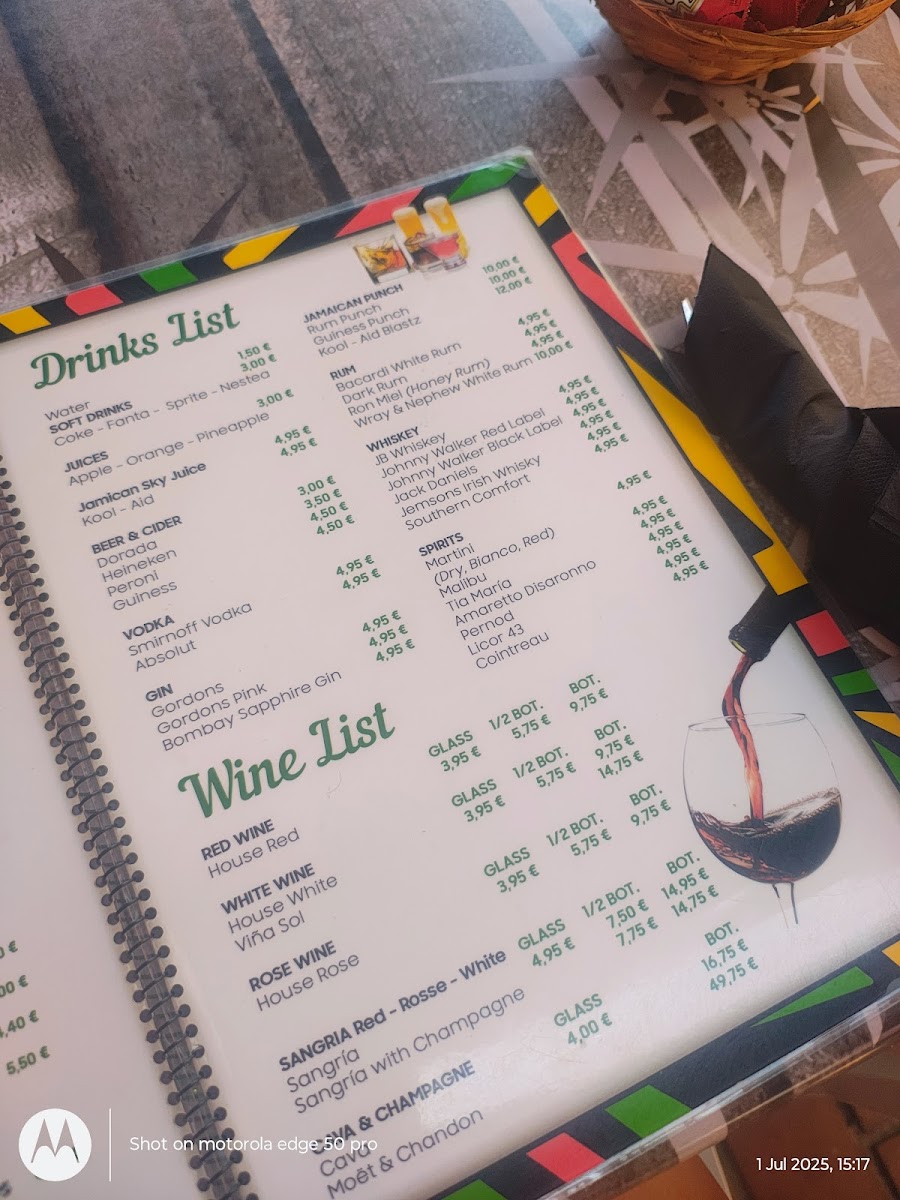 Drinks List
Water 1,50 €
SOFT DRINKS 3,00 €
Coke - Fanta - Sprite - Nestea
JUICES 3,00 €
Apple - Orange - Pineapple
Jamican Sky Juice 4,95 €
Kool - Aid 4,95 €
BEER & CIDER
Dorada 3,00 €
Heineken 3,50 €
Peroni 4,50 €
Guiness 4,50 €
VODKA
Smirnoff Vodka 4,95 €
Absolut 4,95 €
GIN
Gordons 4,95 €
Gordons Pink 4,95 €
Bombay Sapphire Gin 4,95 €
JAMAICAN PUNCH
Rum Punch 10,00 €
Guiness Punch 10,00 €
Kool - Aid Blastz 12,00 €
RUM
Bacardi White Rum 4,95 €
Dark Rum 4,95 €
Ron Miel (Honey Rum) 4,95 €
Wray & Nephew White Rum 10,00 €
WHISKEY
JB Whiskey 4,95 €
Johnny Walker Red Label 4,95 €
Johnny Walker Black Label 4,95 €
Jack Daniels 4,95 €
Jemsons Irish Whisky 4,95 €
Southern Comfort 4,95 €
SPIRITS
Martini 4,95 €
(Dry, Bianco, Red)
Malibu 4,95 €
Tia María 4,95 €
Amaretto Disaronno 4,95 €
Pernod 4,95 €
Licor 43 4,95 €
Cointreau 4,95 €
Wine List
RED WINE GLASS 1/2 BOT. BOT.
House Red 3,95 € 5,75 € 9,75 €
WHITE WINE GLASS 1/2 BOT. BOT.
House White 3,95 € 5,75 € 9,75 €
Viña Sol 14,75 €
ROSE WINE GLASS 1/2 BOT. BOT.
House Rose 3,95 € 5,75 € 9,75 €
SANGRIA Red - Rosse - White GLASS 1/2 BOT. BOT.
Sangría 4,95 € 7,50 € 14,95 €
Sangría with Champagne 7,75 € 14,75 €
& CHAMPAGNE GLASS BOT.
Cava 4,00 € 16,75 €
Moët & Chandon 49,75 €
5,50 €
Shot on motorola edge 50 pro
1 Jul 2025, 15:17